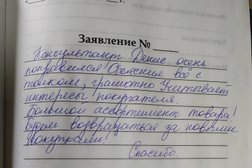 Заявление №
Консультант Денис очень
понравился! Объяснил всё с
тонкостью, грамотно учитывает
интересы покупателя.
Большой ассортимент товара!
Будем возвращаться за новыми
покупками!
Спасибо.